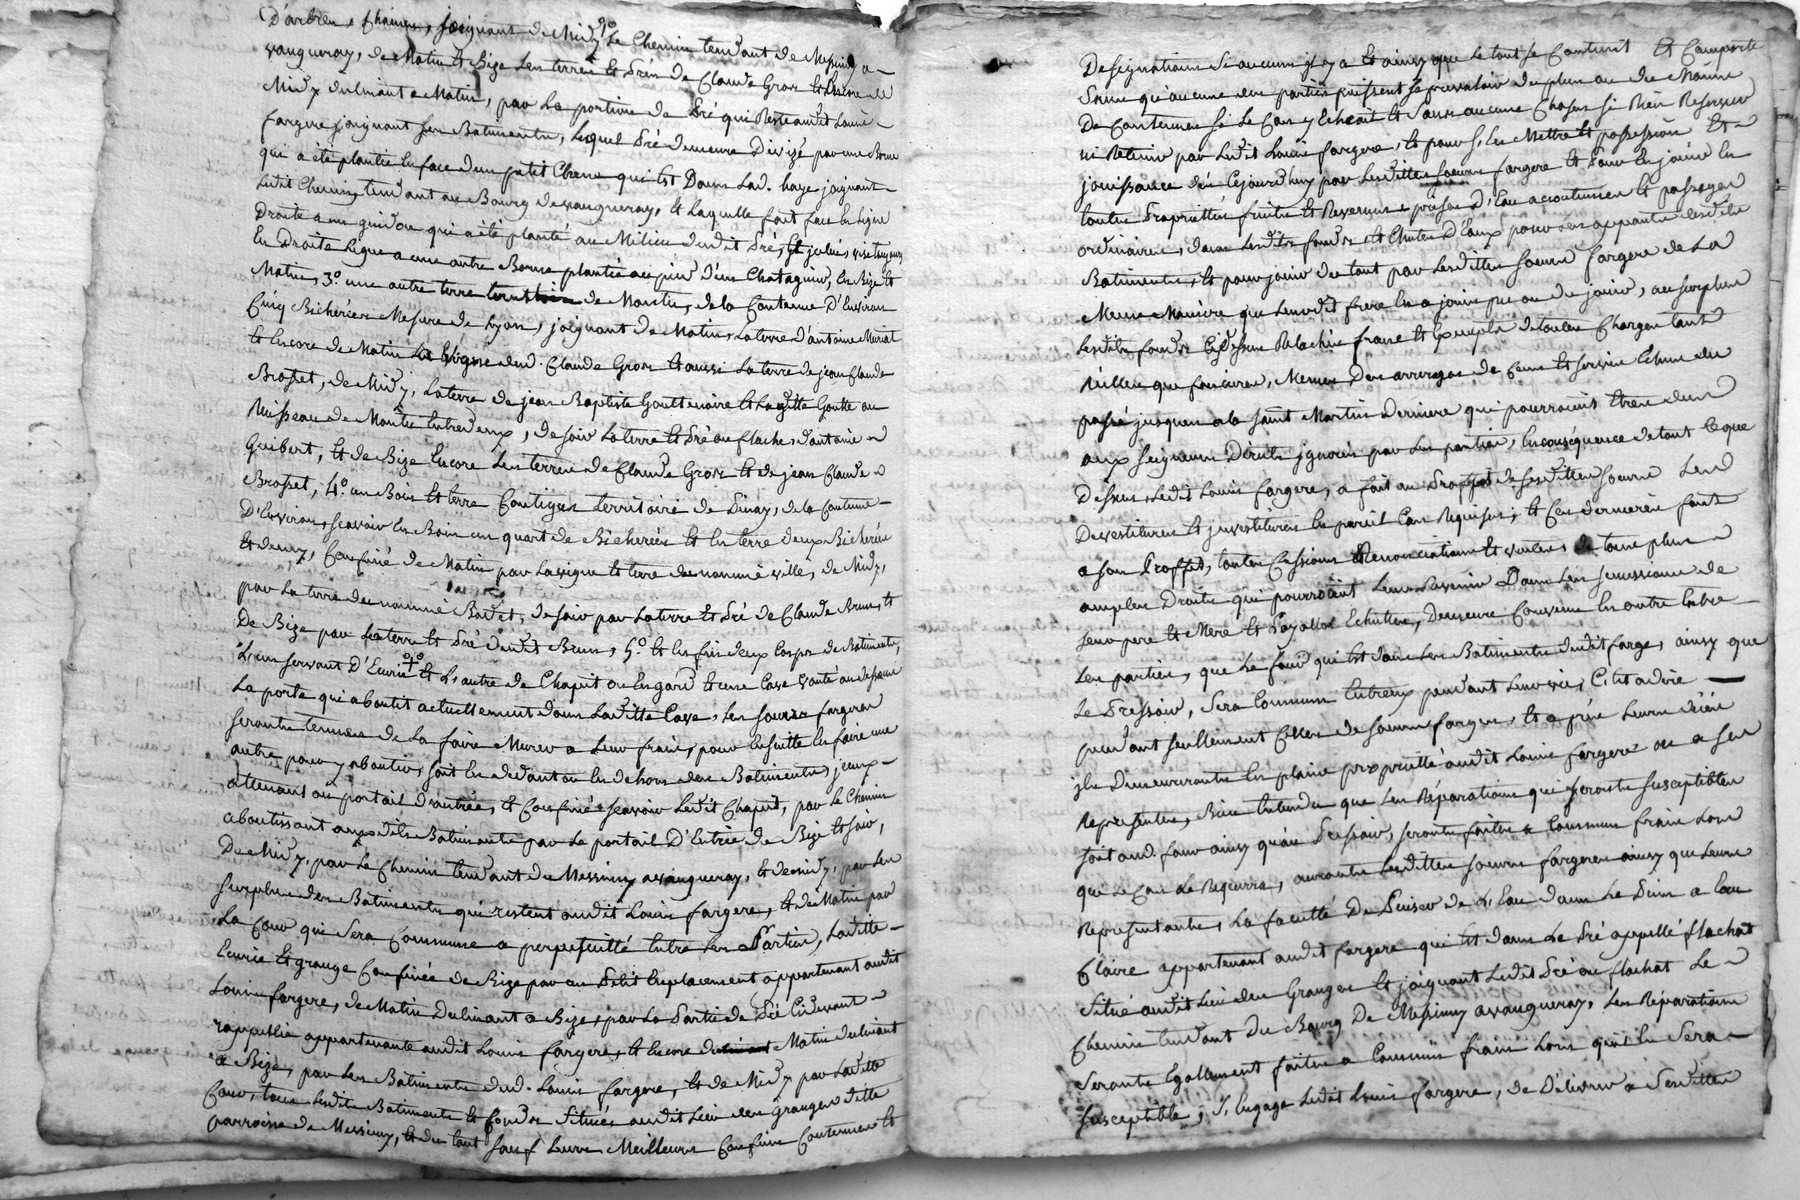 D'arbres, & haines, joignant de Midy le Chemin tendant de Messimy a
vaugneray, de Matin et Bize les terres et Prés de Claude Gros et encore de
Midy declinant a Matin, par la portion de Pré qui Reste audit Louis
fargere joignant ses Batiments, lequel Pré demeure Divizé par une Borne
qui a été plantée en face d'un petit Chene qui est Dans lad. haye joignant
ledit Chemin tendant au Bourg de vaugneray, et laquelle fait face en ligne
Droite a un guidon qui a été planté au Milieu dudit Pré, et
En Droite Ligne a une autre Borne plantée au pied d'un Chatagnier, en Bize et
Matin, 3º une autre terre de de la Contenue D'Environ
Cinq Bicherées Mesure de Lyon, joignant de Matin, la terre d'antoine
et Encore de Matin la vigne dud. Claude Gros et aussi la terre de jean Claude
Brosset, de Midy, la terre de jean Baptiste Gouttenoire et laditte Goutte ou
Ruisseau de entredeux, de soir la terre et Pré ou flache d'antoine
Guibert, et de Bize Encore les terres de Claude Gros et de jean Claude
Brosset, 4º un Bois et terre Contigus territoire de de la Contenue
D'Environ, scavoir En Bois un quart de Bicherée et En terre deux Bicherées
et demy, Confiné de Matin par la vigne et terre du nommé ville, de Midy,
par la terre du nommé de soir par la terre et Pré de Claude Brun, et
De Bize par la terre et Pré dudit Brun, 5º et Enfin deux Corps de Batiments,
L'un servant D'Ecurie et L'autre de Chapit ou Engard et une Cave voutée au dessous
La porte qui aboutit actuellement dans laditte Cave, les soeurs fargeres
seront tenues de la faire Murer a leur frais, pour ensuitte En faire une
autre pour y aboutir, soit en dedans ou en dehors des Batiments, iceux
attenant au portail d'entrée, et Confinés scavoir ledit Chapit, par le Chemin
aboutissant auxdits Batiments par le portail D'Entrée de Bize et soir,
De Midy, par le Chemin tendant de Messimy a vaugneray, et de midy, par les
surplus des Batiments qui restent audit Louis fargere, et de Matin par
La Cour qui Sera Commune a perpetuitté Entre les Parties, laditte
Ecurie et grange Confinée de Bize par un Petit Emplacement appartenant audit
Louis fargere, de Matin Declinant a Bize, par la Partie de Pré Cidevant
rappellée appartenante audit Louis fargere, et Encore de Matin declinant
a Bize, par les Batiments dud. Louis fargere, et de Midy par laditte
Cour, tous lesdits Batiments et fonds Situés audit Lieu des Granges ditte
parroisse de Messimy, et du tout sauf leurs Meilleurs Confins Contenues et
Designations si aucuns il y a et ainsy que le tout se Contient et Comporte
Sans qu'aucune des parties puissent se prevaloir du plus ou du Moins
De Contenue si le Cas y Echeait et Sans aucune Chose si Rien Reserver
ni Retenir par ledit Louis fargere, et pour s'en Mettre en possession et
jouissance dés Cejourd'huy par lesdittes soeurs fargere et Pour En jouir en
toutes Proprietés fruits et Revenus prises D'Eau accoutumées et passages
ordinaires, dans lesdits fonds, et Chutes D'Eaux pour
Batiments, et pour jouir du tout par lesdittes soeurs fargere de La
Meme Maniere que leurdit frere En a joui pu ou du jouir, au surplus
lesdits fonds Cydessus Relachés francs et Exempts de toutes Charges tant
tailles que foncieres, Memes Des arrerages de Cens et servis Echus du
passé jusques a la Saint Martin Derniere qui pourroient Etres dus
aux Seigneurs Directs ignorés par les parties, En consequence de tout ce que
Dessus ledit Louis fargere, a fait au Proffit de sesdittes soeurs Les
Devestitures et jnvestitures En pareil Cas Requises, et Ces dernieres font
a son Proffit, toutes Cessions Renonciations et de tous plus
amples Droits qui pourroint leurs Revenir Dans les successions de
leur pere et Mere et Echutes, Demeure Convenu En outre Entre
Les parties, que Le four qui est dans les Batiments dudit fargere, ainsy que
le Pressoir, Sera Commun Entreux pendant leur vie, C'est adire
pendant seullement Celles de soeurs fargere, et après leurs décès
jls Demeureronts En pleine proprietté audit Louis fargere ou a ses
Representants, Bien Entendu que les Réparations qui seronts susceptibles
soit aud. four ainsy qu'au Pressoir, seronts faittes a Communs frais Lors
que le Cas le Requerra, auronts Lesdittes soeurs fargere ainsy que leurs
Representants, La faculté De Puiser de L'Eau dans Le Puits a Eau
Claire appartenant audit fargere qui Est dans Le Pré appellé flachat
Situé audit Lieu des Granges et joignant ledit Pré ou flachat Le
Chemin tendant Du Bourg De Messimy a vaugneray, Les Réparations
Seronts Egallement faittes a Communs frais Lors qu'il En Sera
susceptible, S'Engage ledit Louis fargere, de Delivrer a Sesdittes